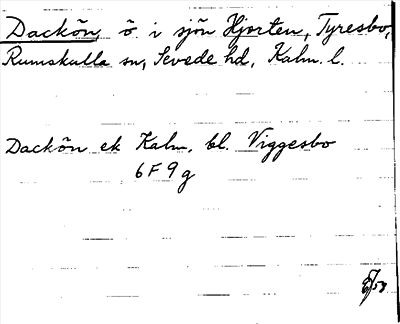 Dackön, ö i sjön Hjorten, Tyresbo,
Rumskulla sn, Sevede hd, Kalm. l.
Dackön ek Kalm. bl. Viggesbo
6F9g